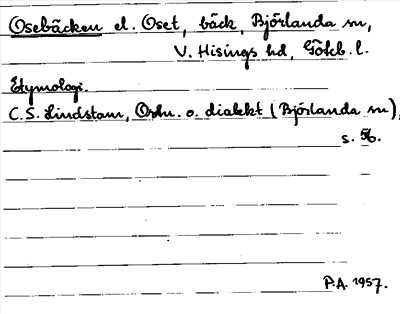 Osebäcken el. Oset, bäck, Björlanda sn,
V. Hisings hd, Göteb. l.
Etymologi.
C.S. Lindstam, Ortn. o. dialekt (Björlanda sn),
s. 56.
P.A. 1957.